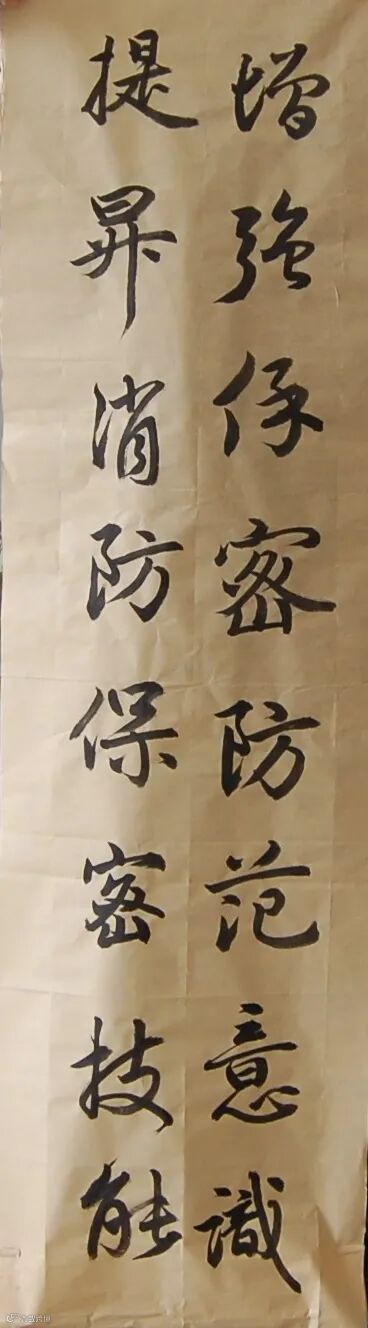 增強保密防范意識
提昇消防保密技能